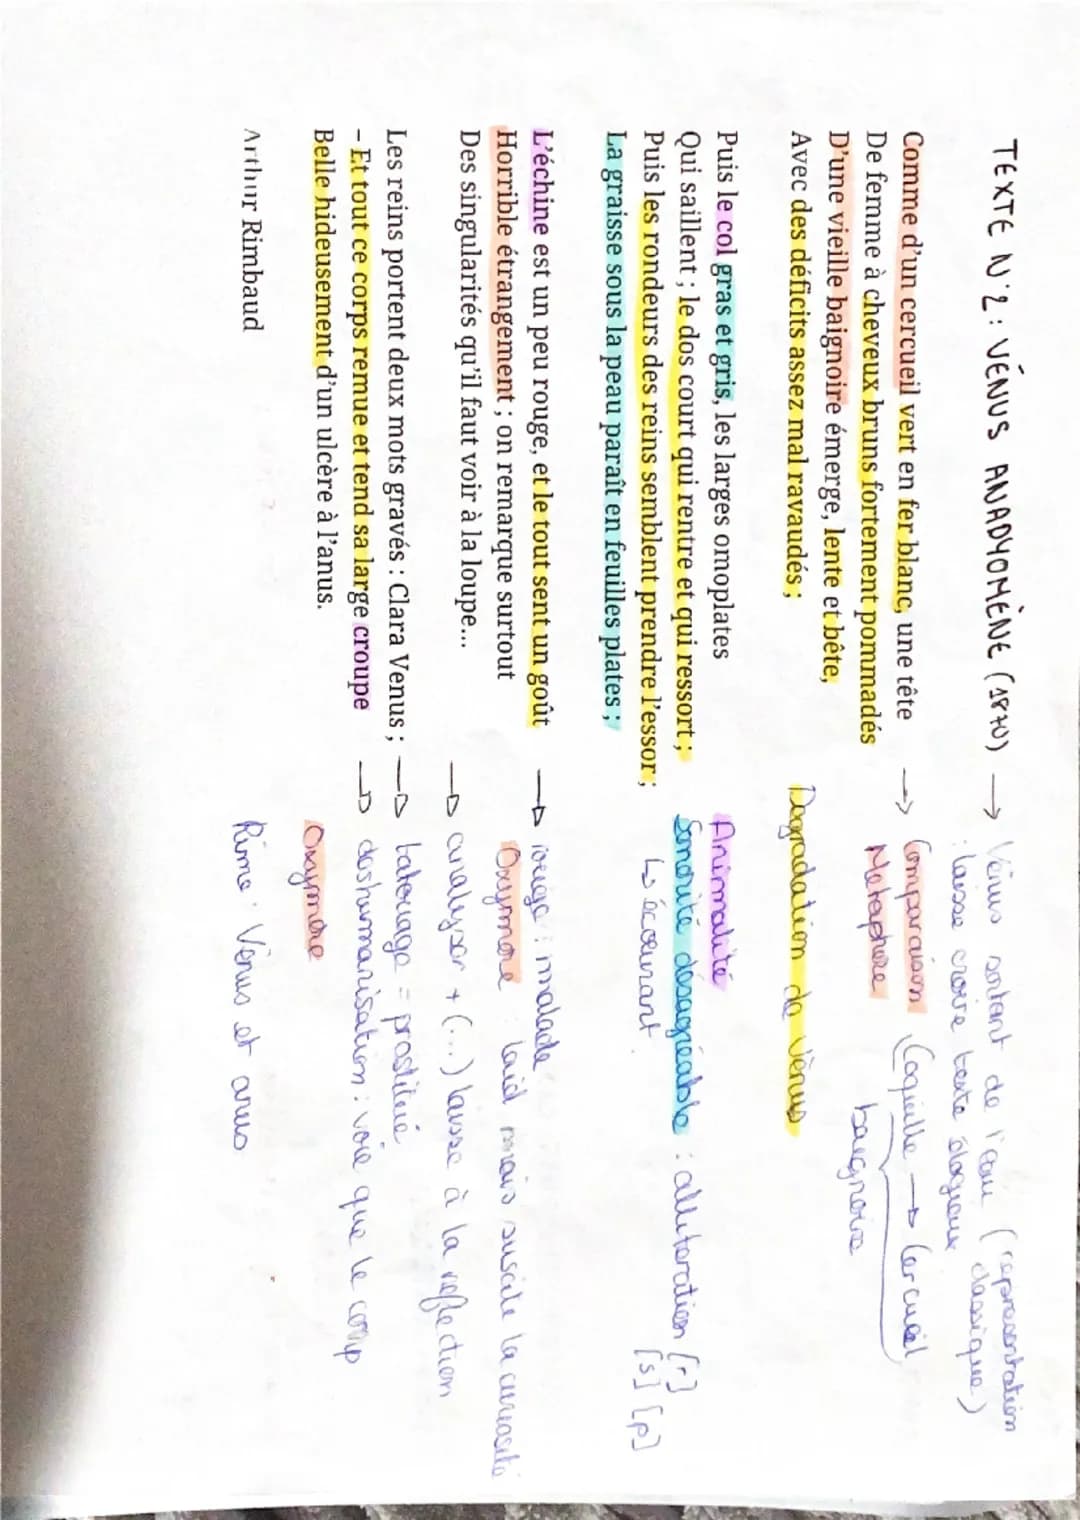 TEXTE N°2 : VÉNUS ANADYOMÈNE (1870) → Vénus sortant de l'eau (representation classique)
: laisse croire texte élogieux
Comme d'un cercueil vert en fer blanc, une tête → Comparaison (Coquille → Cercueil
De femme à cheveux bruns fortement pommadés Métaphore baignoire
D'une vieille baignoire émerge, lente et bête,
Avec des déficits assez mal ravaudés ; Dégradation de Vénus
Puis le col gras et gris, les larges omoplates Animalité
Qui saillent ; le dos court qui rentre et qui ressort ; Sonorité désagréable : allitération [r]
Puis les rondeurs des reins semblent prendre l'essor ; ↳ écœurant [s] [p]
La graisse sous la peau paraît en feuilles plates ;
L'échine est un peu rouge, et le tout sent un goût → rouge : malade
Horrible étrangement ; on remarque surtout Oxymore : laid mais suscite la curiosité
Des singularités qu'il faut voir à la loupe... → analyser + (...) laisse à la reflection
Les reins portent deux mots gravés : Clara Venus ; → tatouage = prostitué
- Et tout ce corps remue et tend sa large croupe → deshumanisation : voie que le corp
Belle hideusement d'un ulcère à l'anus. Oxymore
Arthur Rimbaud Rime : Vénus et anus